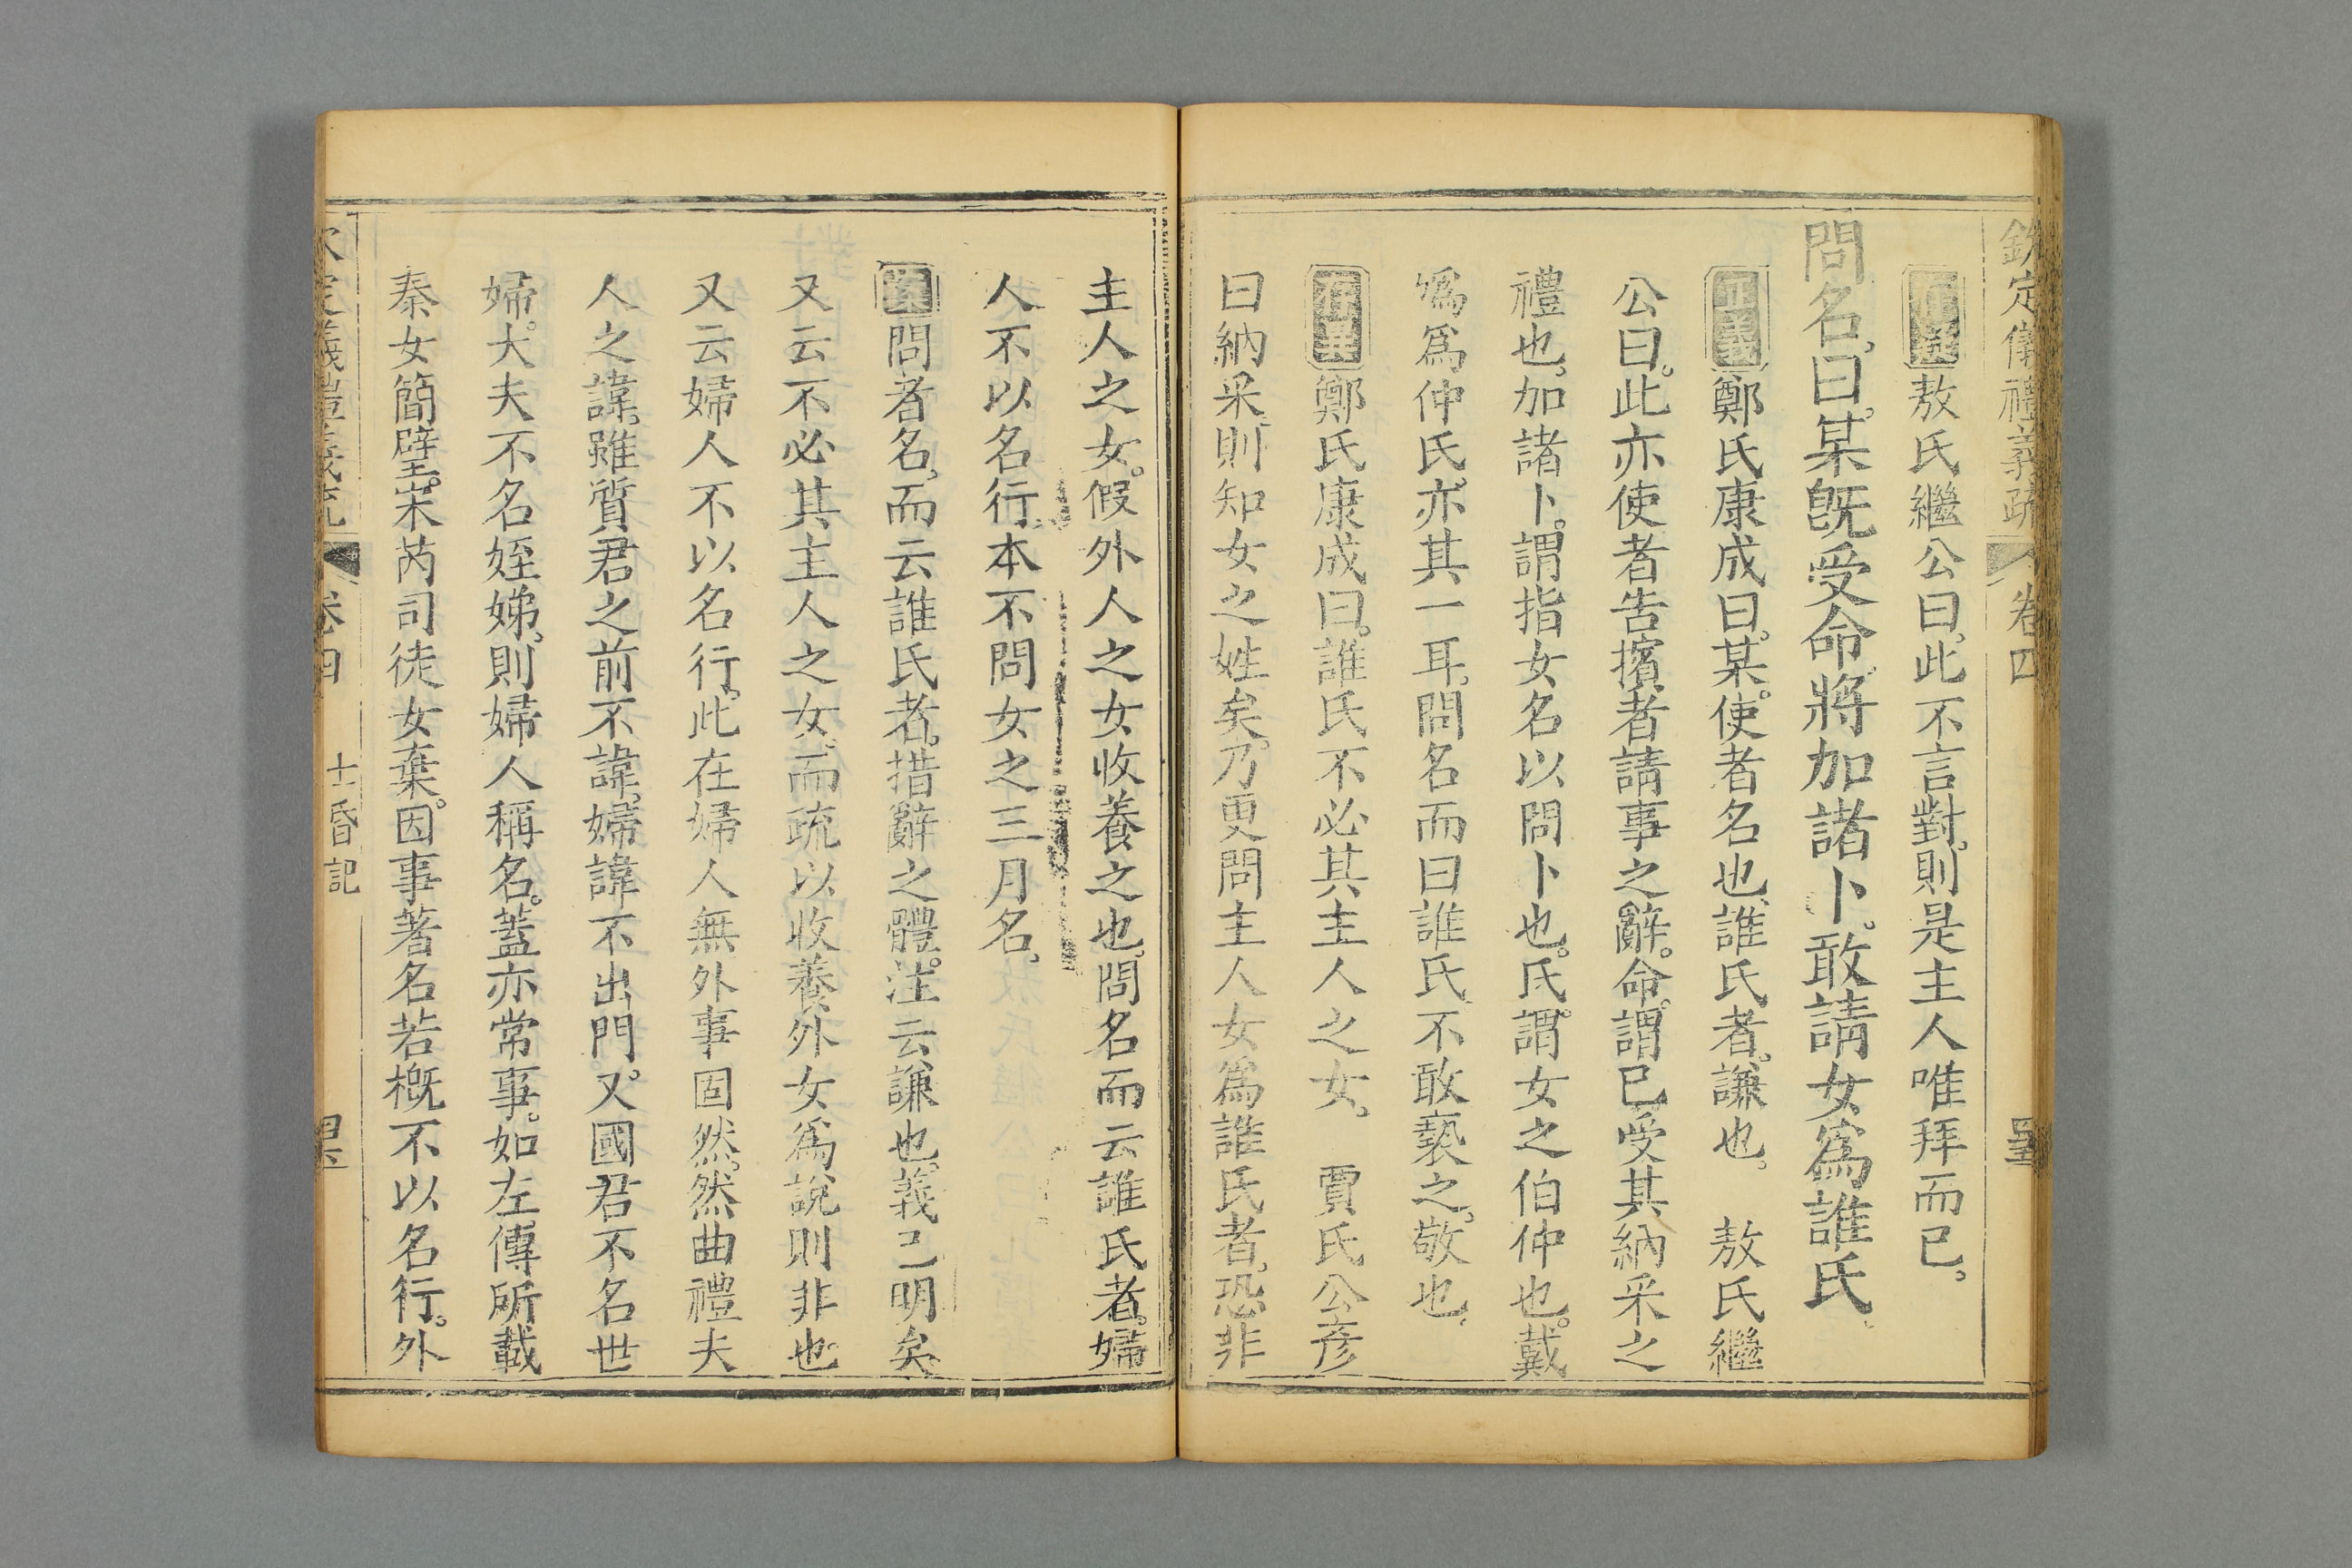 欽定儀禮義疏 卷四
存疑敖氏繼公曰此不言對則是主人唯拜而已。
問名曰某旣受命將加諸卜。敢請女爲誰氏
正義鄭氏康成曰某使者名也誰氏者謙也 敖氏繼
公曰。此亦使者告擯者請事之辭。命謂已受其納采之
禮也加諸卜。謂指女名以問卜也。氏謂女之伯仲也。戴
嬀爲仲氏亦其一耳問名而曰誰氏不敢褻之敬也
存異鄭氏康成曰。誰氏不必其主人之女。 賈氏公彥
曰納采則知女之姓矣乃更問主人女爲誰氏者恐非
主人之女。假外人之女收養之也問名而云誰氏者婦
人不以名行本不問女之三月名
案問者名而云誰氏者措辭之體。注云謙也義已明矣
又云不必其主人之女而疏以收養外女爲說則非也
又云婦人不以名行此在婦人無外事固然然曲禮夫
人之諱雖質君之前不諱婦諱不出門。又國君不名世
婦大夫不名姪娣則婦人稱名。蓋亦常事。如左傳所載
秦女簡璧宋芮司徒女棄。因事著名若概不以名行。外
欽定儀禮義疏 卷四 士昏記